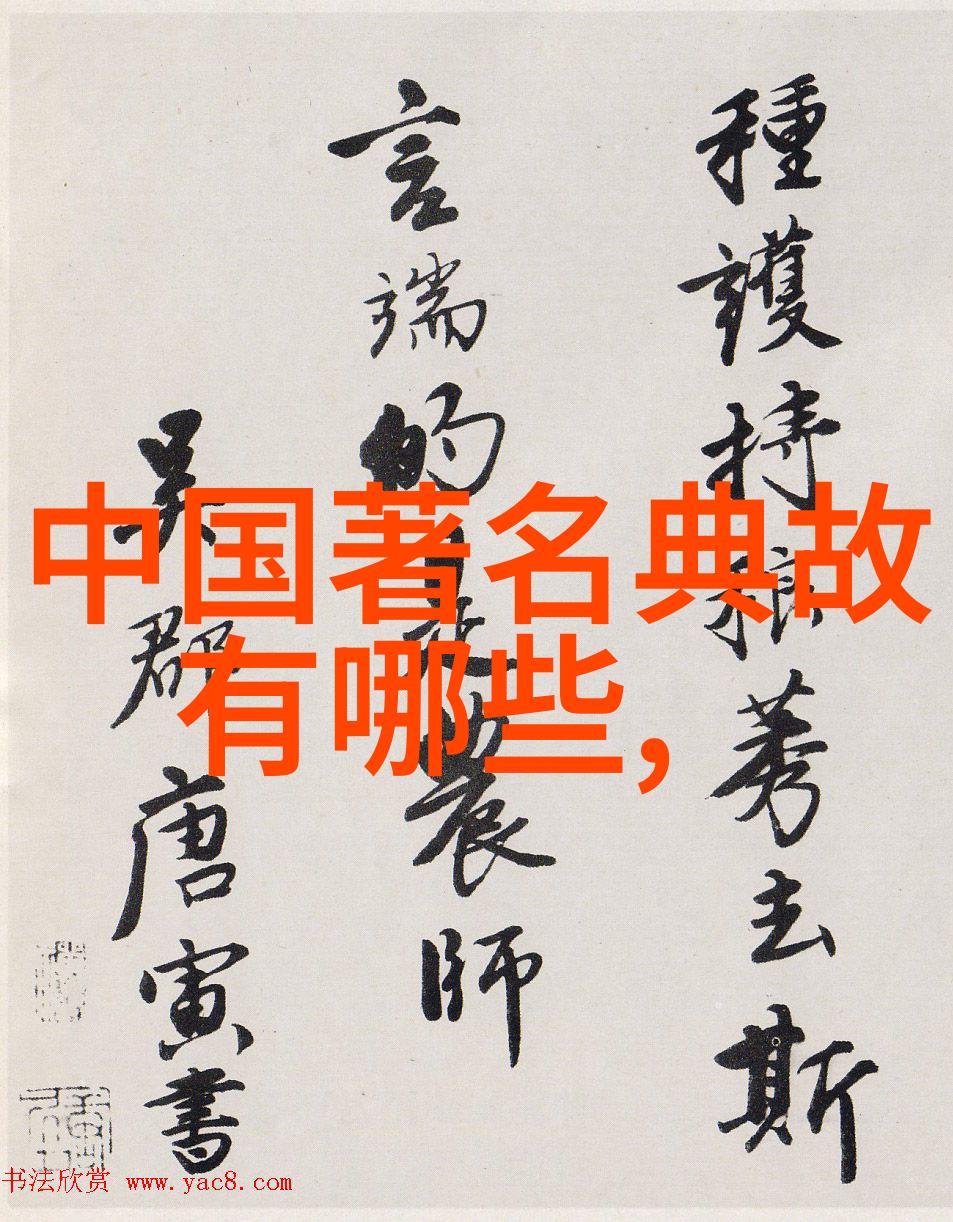 種護持稂莠去斯
言端的是農師
吴郡唐寅書
中国著名典故
有哪些,
书法欣赏 www.yac8.com